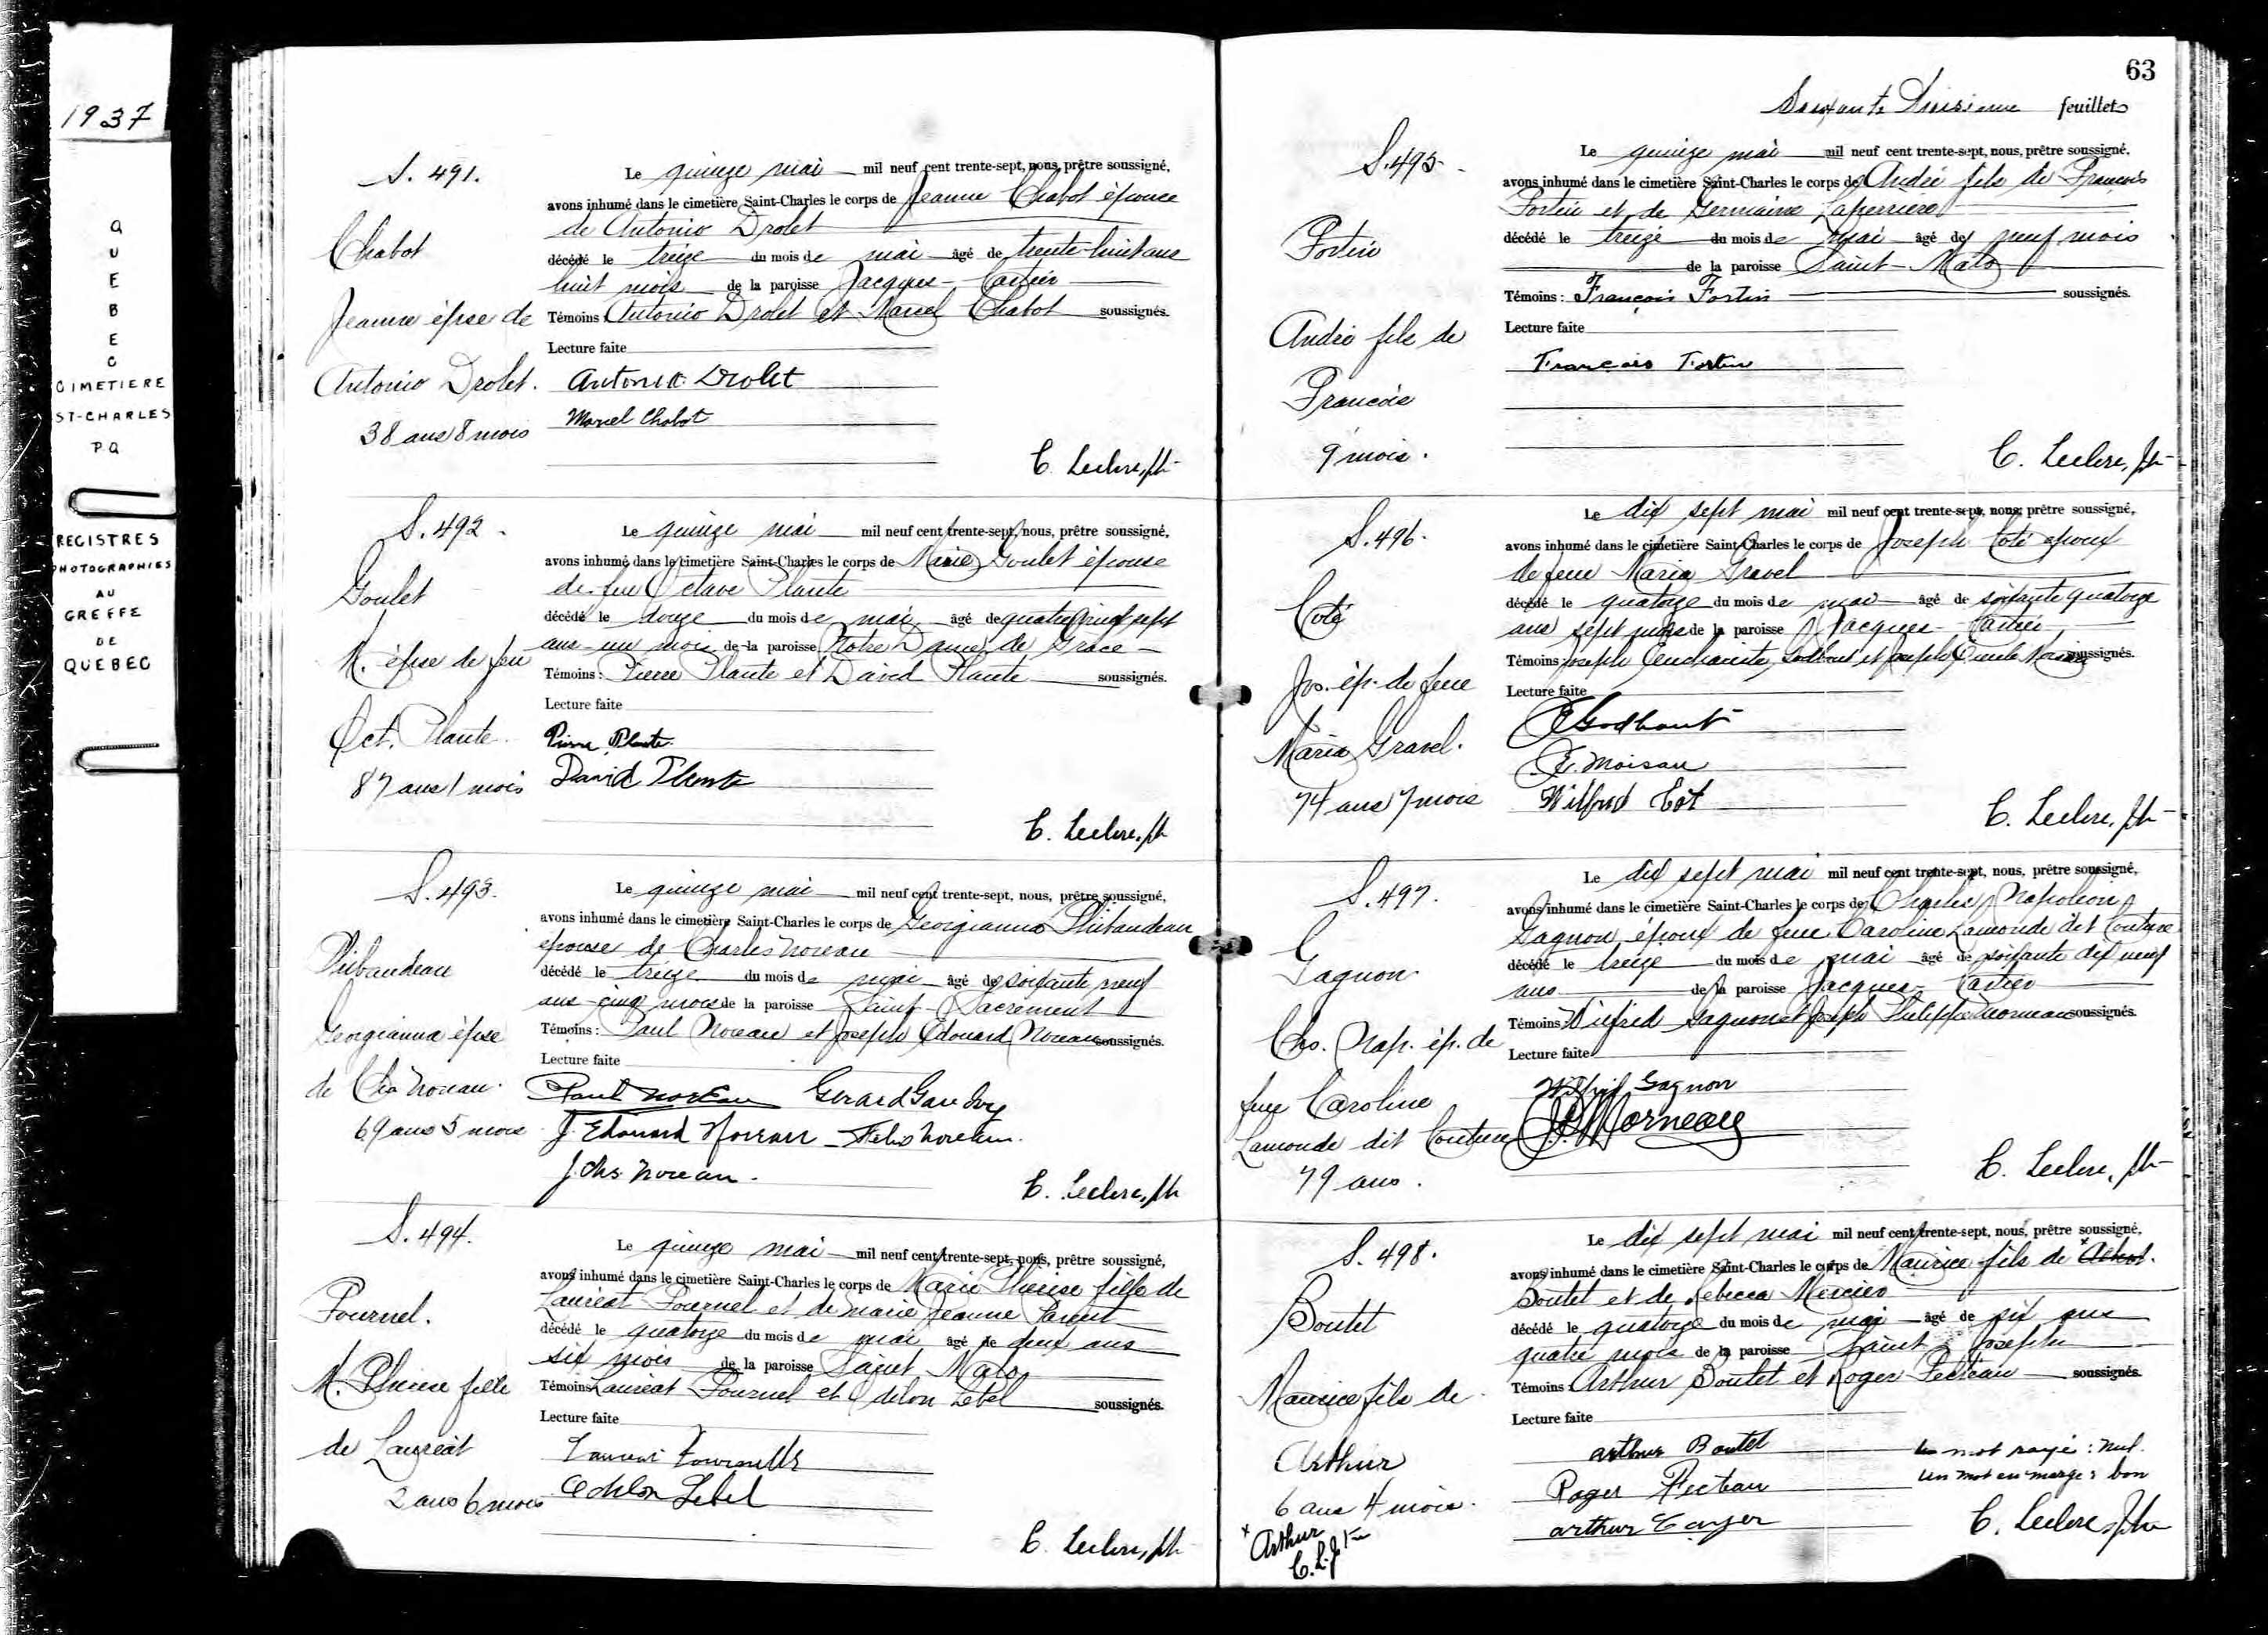 1937
QUEBEC
CIMETIERE
ST-CHARLES
P.Q
REGISTRES
PHOTOGRAPHIES
AU
GREFFE
DE
QUEBEC
S. 491.
Chabot
Jeanne épse de
Antonio Drolet.
38 ans 8 mois
Le quinze mai mil neuf cent trente-sept, nous, prêtre soussigné,
avons inhumé dans le cimetière Saint-Charles le corps de Jeanne Chabot épouse
de Antonio Drolet
décédé le treize du mois de mai âgé de trente-huit ans
huit mois de la paroisse Jacques-Cartier
Témoins: Antonio Drolet et Marcel Chabot soussignés.
Lecture faite
Antonio Drolet
Marcel Chabot
C. Leclerc, ptr
S. 492.
Goulet
M. épse de feu
Oct. Plante.
87 ans 1 mois
Le quinze mai mil neuf cent trente-sept, nous, prêtre soussigné,
avons inhumé dans le cimetière Saint-Charles le corps de Marie Goulet épouse
de feu Octave Plante
décédé le douze du mois de mai âgé de quatre vingt sept
ans un mois de la paroisse Notre Dame de Grace
Témoins: Pierre Plante et David Plante soussignés.
Lecture faite
Pierre Plante
David Plante
C. Leclerc, ptr
S. 493.
Thibaudeau
Georgianna épse
de Chs Noreau.
69 ans 5 mois
Le quinze mai mil neuf cent trente-sept, nous, prêtre soussigné,
avons inhumé dans le cimetière Saint-Charles le corps de Georgianna Thibaudeau
épouse de Charles Noreau
décédé le treize du mois de mai âgé de soixante neuf
ans cinq mois de la paroisse Saint-Sacrement
Témoins: Paul Noreau et Joseph Edouard Noreau soussignés.
Lecture faite
Paul Noreau Gerard Gaudry
J. Edouard Noreau Felix Noreau.
J. Chs. Noreau.
C. Leclerc, ptr
S. 494.
Fournel.
M. Thérèse fille
de Lauréat
2 ans 6 mois
Le quinze mai mil neuf cent trente-sept, nous, prêtre soussigné,
avons inhumé dans le cimetière Saint-Charles le corps de Marie Thérèse fille de
Lauréat Fournel et de Marie Jeanne Parent
décédé le quatorze du mois de mai âgé de deux ans
six mois de la paroisse Saint Malo
Témoins: Lauréat Fournel et Odilon Lebel soussignés.
Lecture faite
Odilon Lebel
C. Leclerc, ptr
63
Soixante Troisième feuillet
S. 495.
Fortin
André fils de
François
9 mois.
Le quinze mai mil neuf cent trente-sept, nous, prêtre soussigné,
avons inhumé dans le cimetière Saint-Charles le corps de André fils de François
Fortin et de Germaine Laperrière
décédé le treize du mois de mai âgé de neuf mois
de la paroisse Saint-Malo
Témoins: François Fortin soussignés.
Lecture faite
François Fortin
C. Leclerc, ptr
S. 496.
Coté
Jos. ép. de feue
Maria Gravel.
74 ans 7 mois
Le dix sept mai mil neuf cent trente-sept, nous, prêtre soussigné,
avons inhumé dans le cimetière Saint-Charles le corps de Joseph Coté époux
de feue Maria Gravel
décédé le quatorze du mois de mai âgé de soixante quatorze
ans sept mois de la paroisse Jacques-Cartier
Témoins: Joseph Eucchariste Godbout et Joseph Emile Moisan soussignés.
Lecture faite
E Godbout
E. Moisan
Wilfrid Coté
C. Leclerc, ptr
S. 497.
Gagnon
Chs. Nap. ép. de
feue Caroline
Lamonde dit Couture
79 ans.
Le dix sept mai mil neuf cent trente-sept, nous, prêtre soussigné,
avons inhumé dans le cimetière Saint-Charles le corps de Charles Napoléon
Gagnon époux de feue Caroline Lamonde dit Couture
décédé le treize du mois de mai âgé de soixante dix neuf
ans de la paroisse Jacques-Cartier
Témoins: Wilfrid Gagnon et Joseph Philippe Morneau soussignés.
Lecture faite
Wilfrid Gagnon
J.P. Morneau
C. Leclerc, ptr
S. 498.
Boutet
Maurice fils de
Arthur
6 ans 4 mois.
x Arthur
C. L. ptr
Le dix sept mai mil neuf cent trente-sept, nous, prêtre soussigné,
avons inhumé dans le cimetière Saint-Charles le corps de Maurice fils de x
Boutet et de Rebecca Mercier
décédé le quatorze du mois de mai âgé de six ans
quatre mois de la paroisse Saint Joseph
Témoins: Arthur Boutet et Roger Fecteau soussignés.
Lecture faite
Arthur Boutet
Roger Fecteau
Arthur Cayer
Un mot rayé: nul.
Un mot en marge: bon
C. Leclerc, ptr